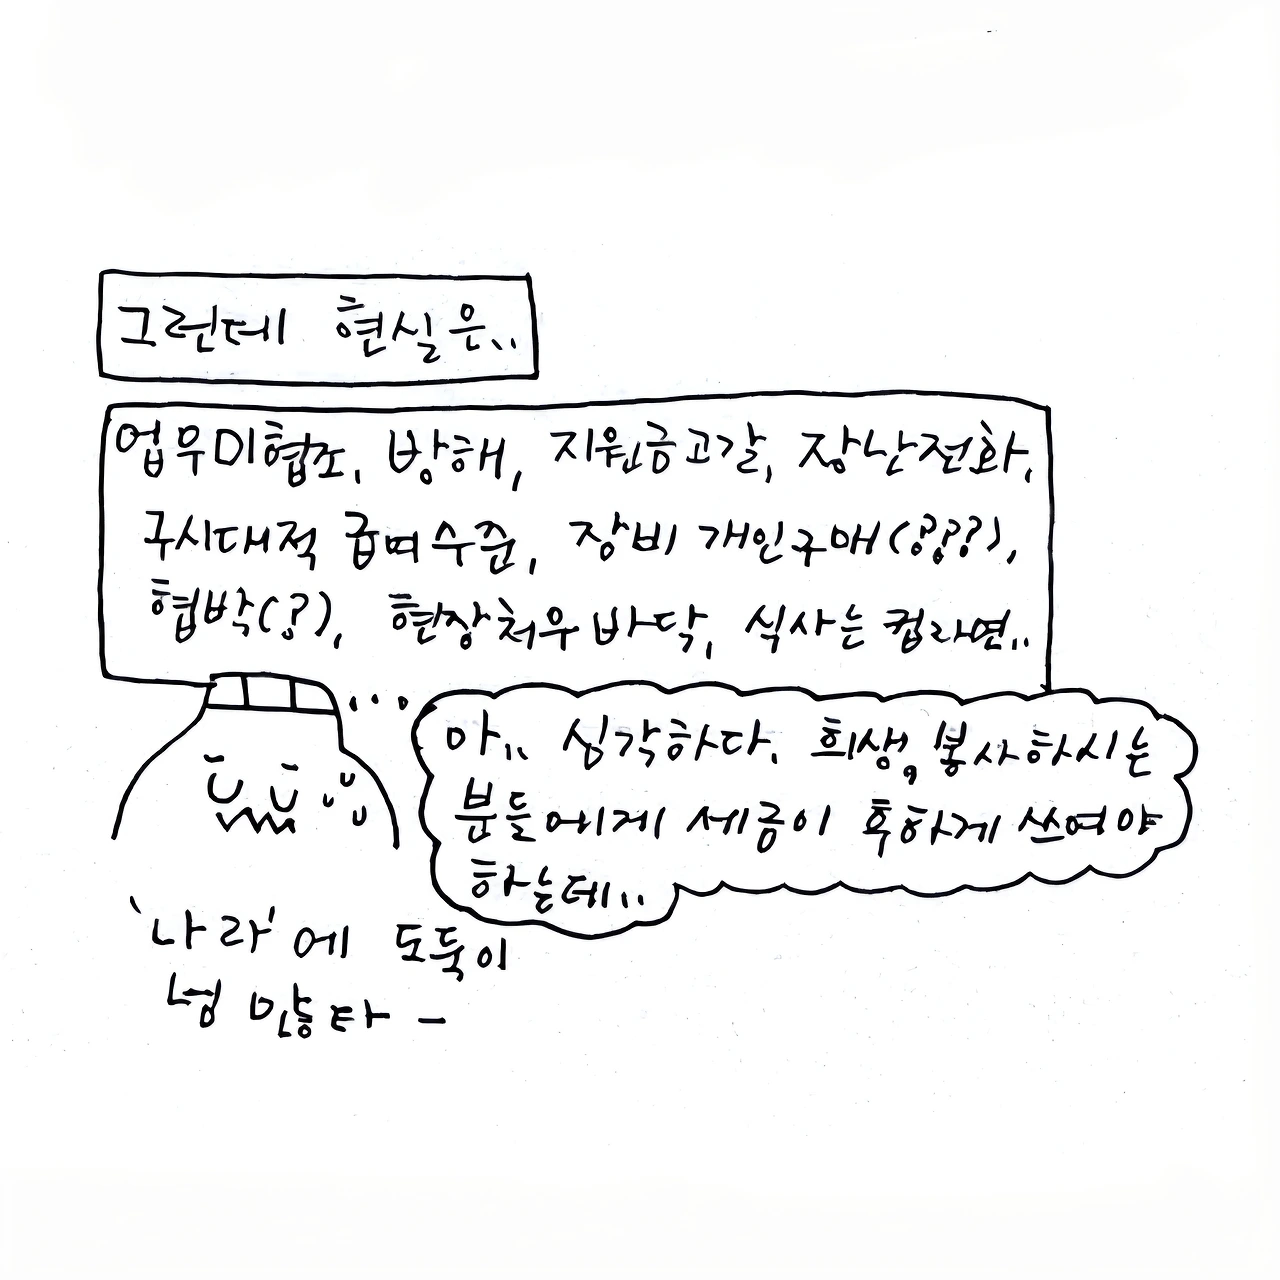 그런데 현실은..
업무미협조, 방해, 지원금고갈, 장난전화,
구시대적 급여수준, 장비 개인구매(???),
협박(?), 현장처우 바닥, 식사는 컵라면..
...
아.. 심각하다. 희생, 봉사하시는
분들에게 세금이 후하게 쓰여야
하는데..
'나라'에 도둑이
넘 많타 -